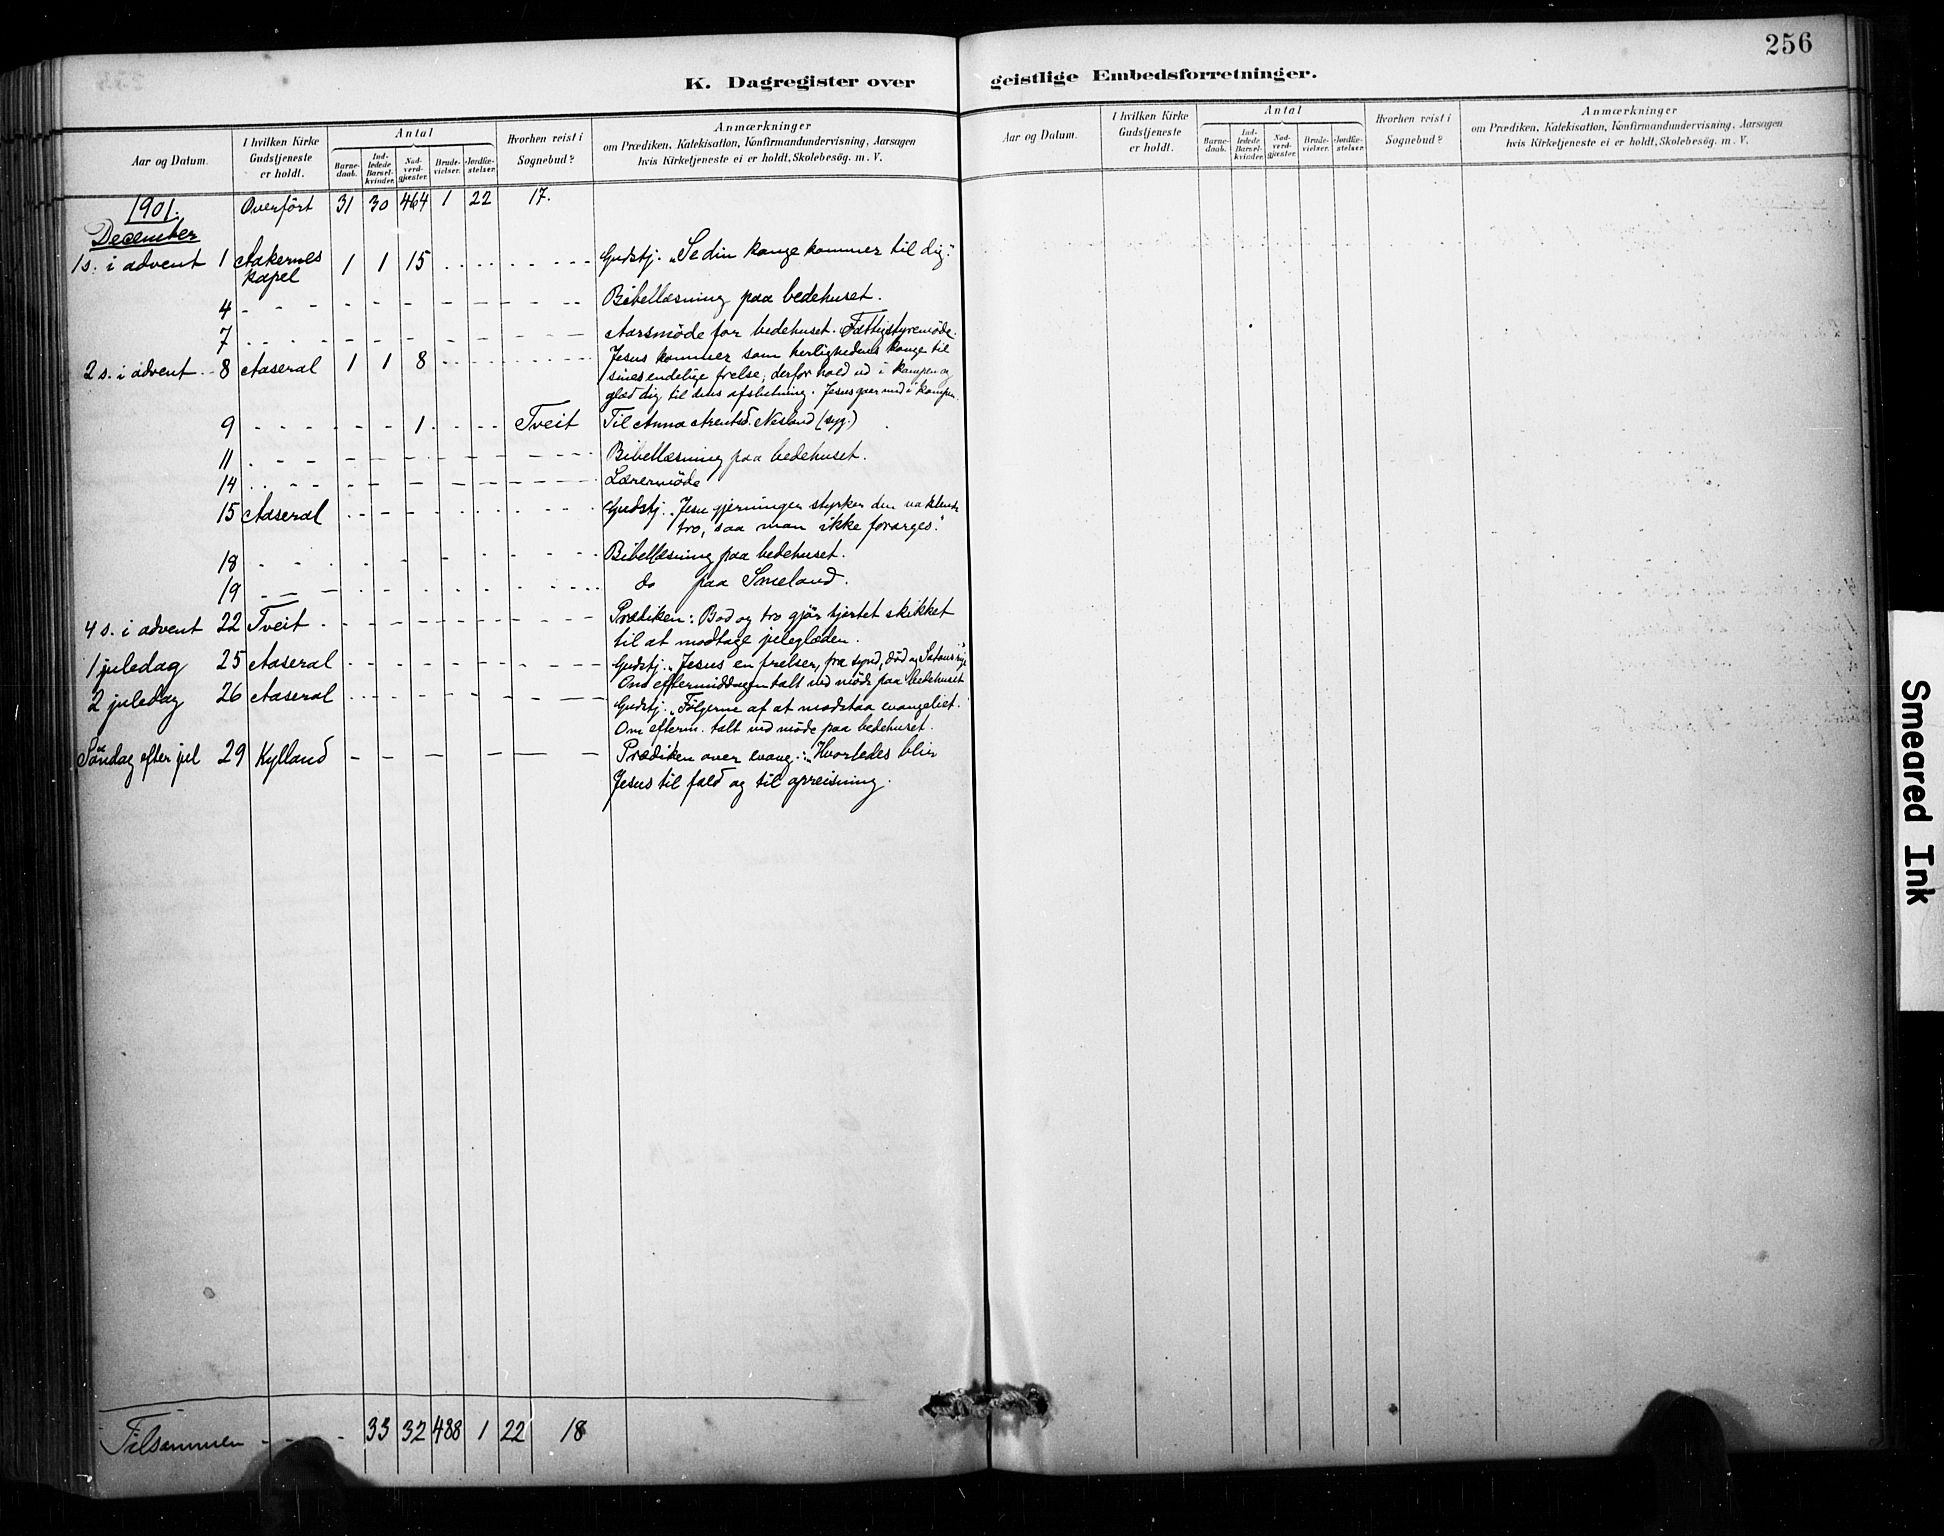 256
K. Dagregister over geistlige Embedsforretninger.
Aar og Datum.
I hvilken Kirke Gudstjeneste er holdt.
Antal
Barne-daab.
Ind-ledede Barsel-kvinder.
Nad-verd-gjester.
Brude-vielser.
Jordfæ-stelser.
Hvorhen reist i Sognebud?
Anmærkninger
om Prædiken, Katekisation, Konfirmandundervisning, Aarsagen
hvis Kirketjeneste ei er holdt, Skolebesøg. m. V.
Aar og Datum.
I hvilken Kirke Gudstjeneste er holdt.
Antal
Barne-daab.
Ind-ledede Barsel-kvinder.
Nad-verd-gjester.
Brude-vielser.
Jordfæ-stelser.
Hvorhen reist i Sognebud?
Anmærkninger
om Prædiken, Katekisation, Konfirmandundervisning, Aarsagen
hvis Kirketjeneste ei er holdt, Skolebesøg. m. V.
1901. Overført 31 30 464 1 22 17.
December
1 s. i advent 1 Aakernes kapel 1 1 15 Gudstj. "Se din konge kommer til dig."
4 Bibellæsning paa bedehuset.
7 Aarsmøde for bedehuset. Fattigstyremøde.
2 s. i advent 8 Aaseral 1 1 8 Jesus kommer som herlighedens konge til
sines endelige frelse; derfor hold ud i kampen og
glæd dig til dens afslutning. Jesus gaar med i kampen.
9 1 Tveit Til Anna Arentsd. Nesland (syg.)
11 Bibellæsning paa bedehuset.
14 Lærermøde
15 Aaseral Gudstj. "Jesu gjerninger styrker den vaklende
tro, saa man ikke forarges."
18 Bibellæsning paa bedehuset.
19 do paa Smeland.
4 s. i advent 22 Tveit Prædiken: Bod og tro gjør hjertet skikket
til at modtage juleglæden.
1 juledag 25 Aaseral Gudstj. "Jesus en frelser, fra synd, død og Satans
Om eftermiddagen talt ved møde paa bedehuset
2 juledag 26 Aaseral Gudstj. "Følgerne af at modstaa evangeliet.
Om efterm. talt ved møde paa bedehuset.
Søndag efter jul 29 Kylland Prædiken over evang.: "Hvorledes blir
Jesus til fald og til opreisning.
Tilsammen 33 32 488 1 22 18
Smeared Ink